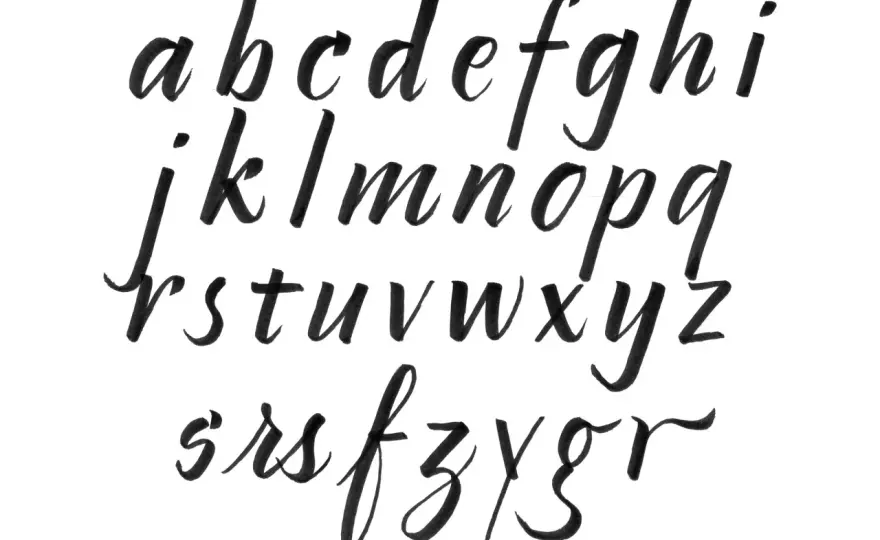 a b c d e f g h i
j k l m n o p q
r s t u v w x y z
s r s f z y g r